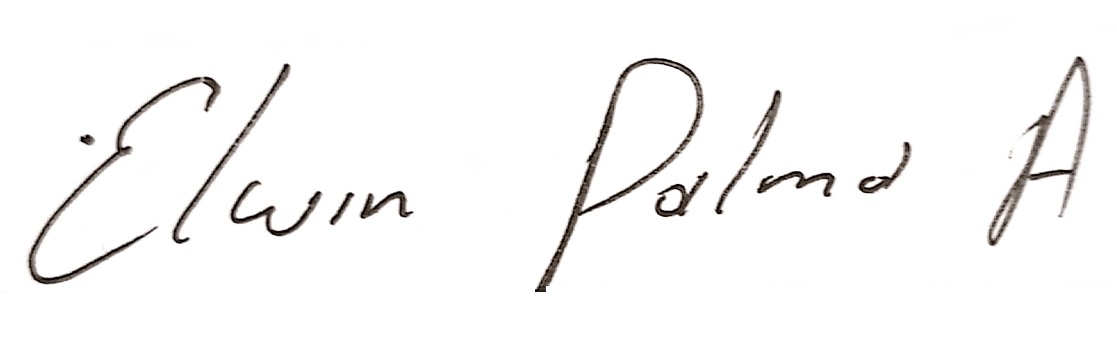 Elwin Palma A